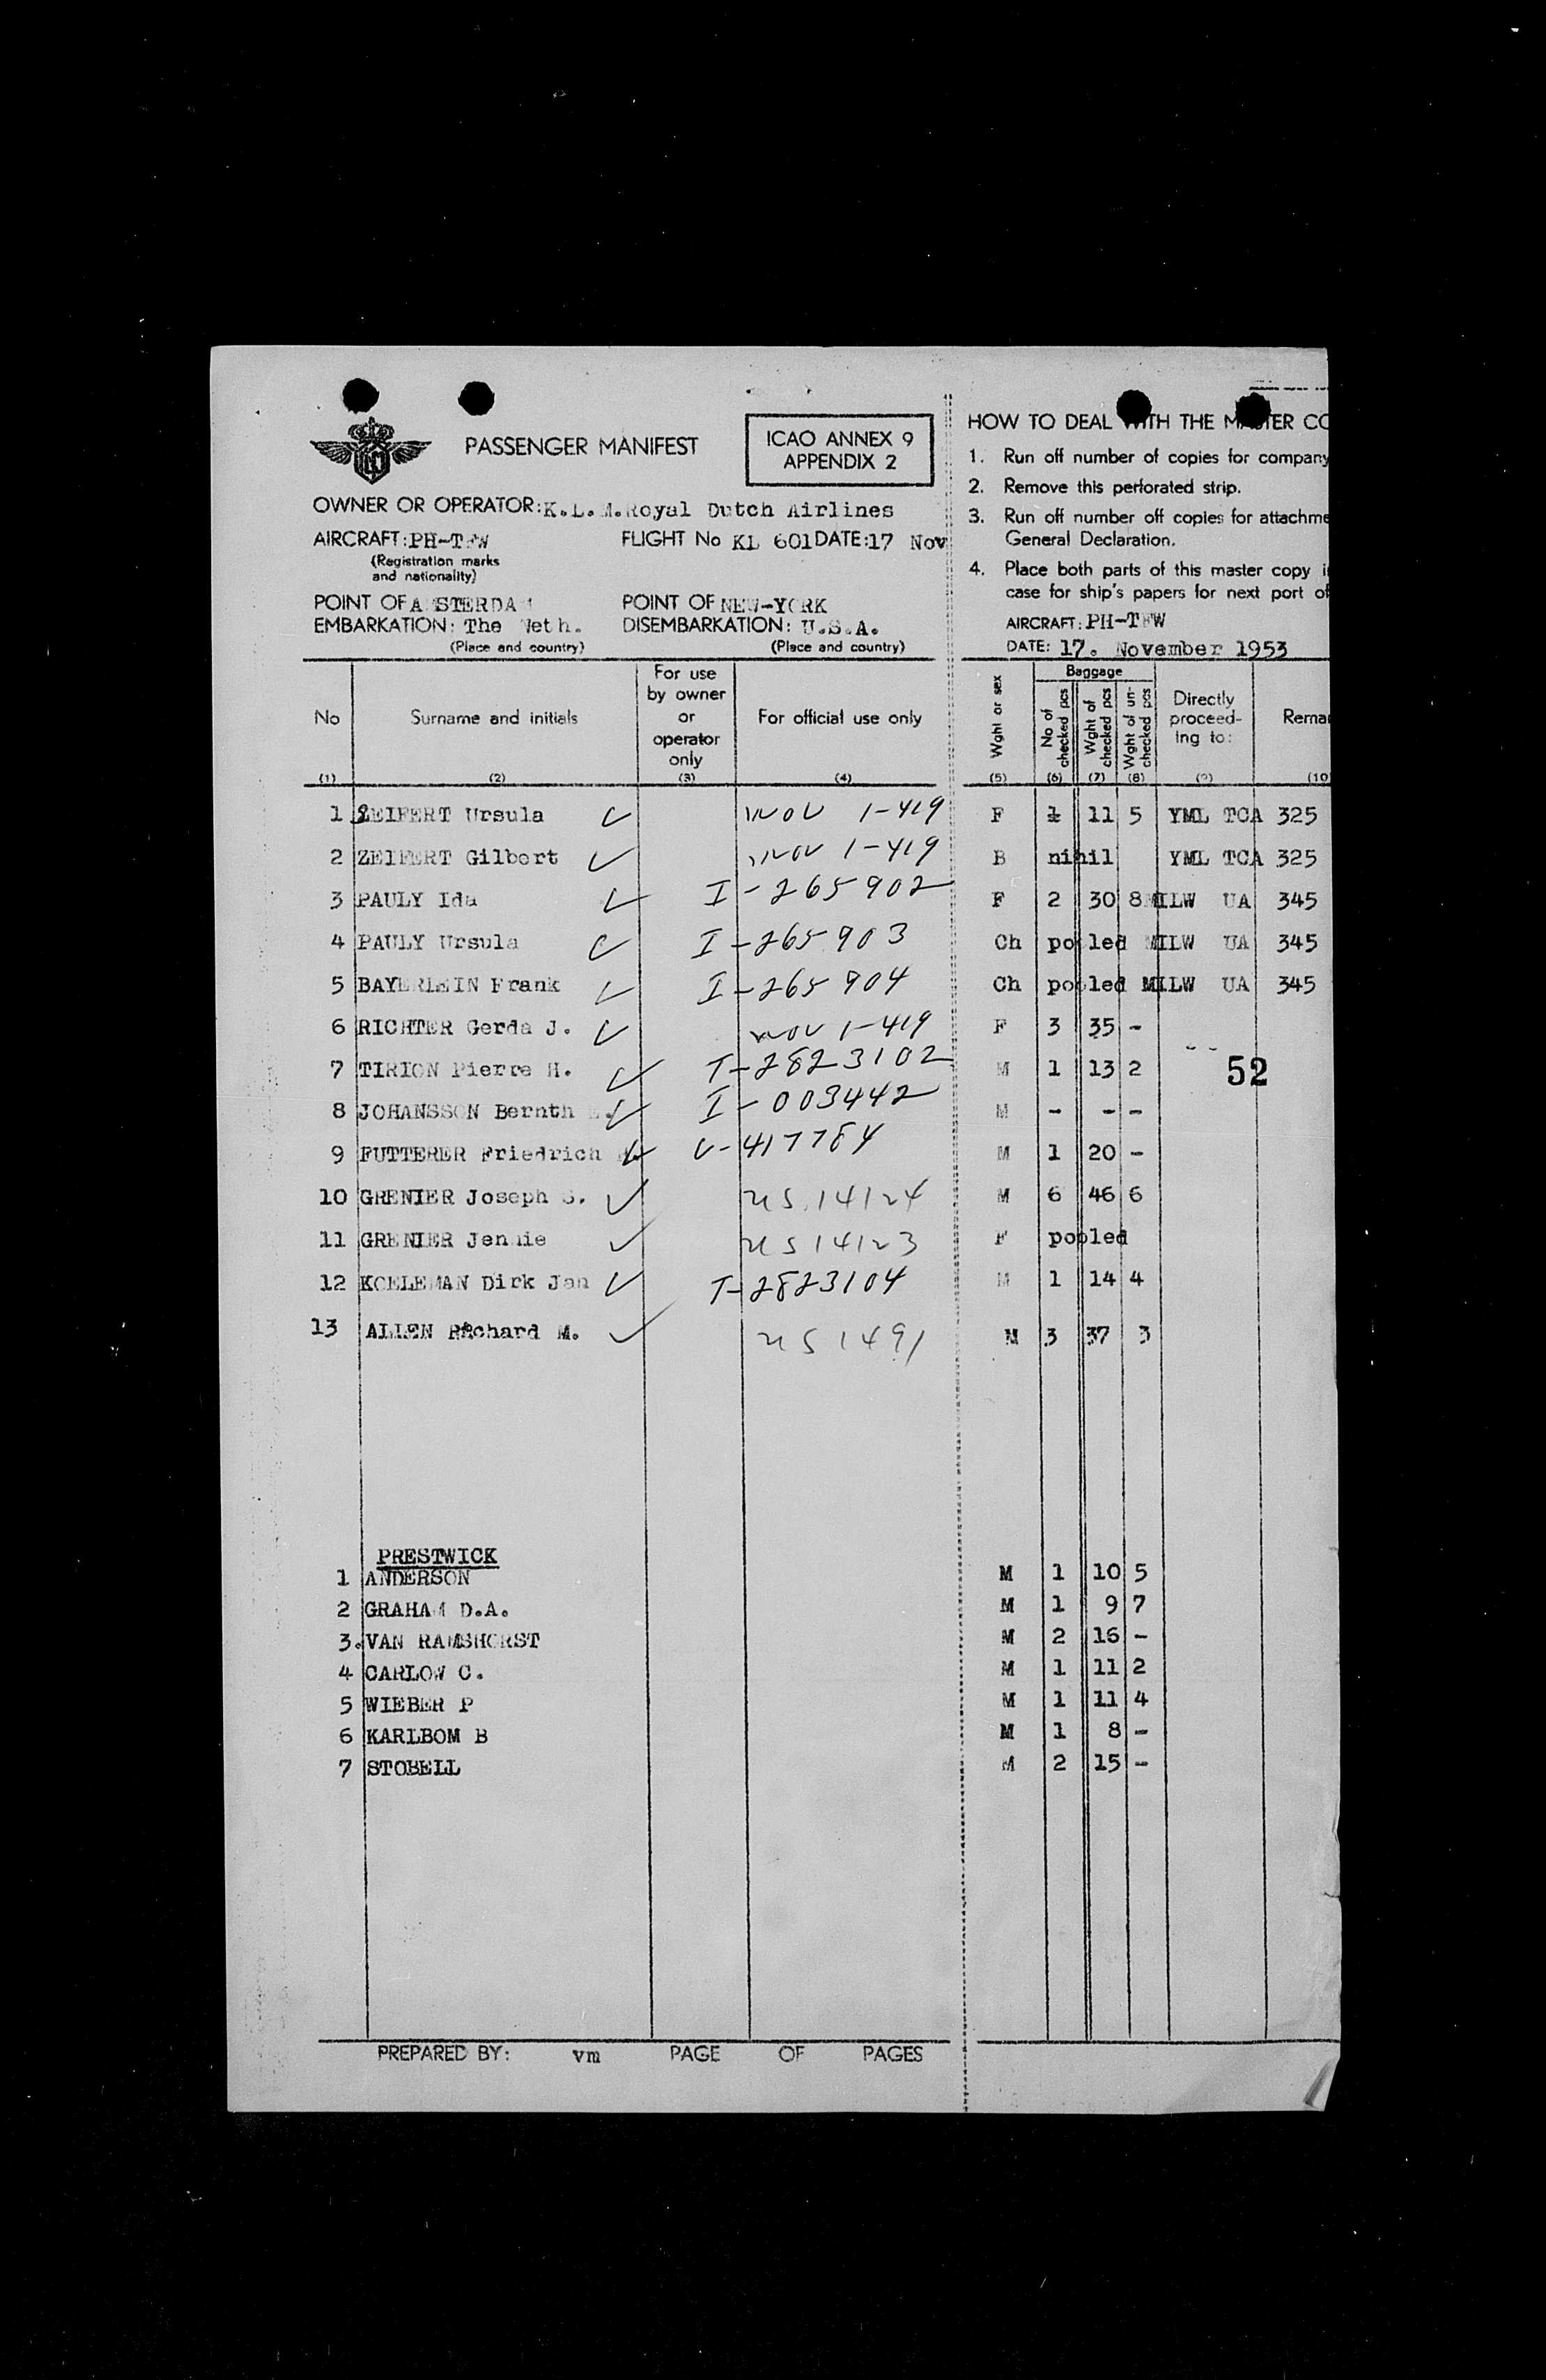 PASSENGER MANIFEST
ICAO ANNEX 9
APPENDIX 2
OWNER OR OPERATOR: K.L.M.Royal Dutch Airlines
AIRCRAFT: PH-TFW FLIGHT No KL 601 DATE: 17 Nov
(Registration marks
and nationality)
POINT OF AMSTERDAM POINT OF NEW-YORK
EMBARKATION: The Neth. DISEMBARKATION: U.S.A.
(Place and country) (Place and country)
HOW TO DEAL WITH THE MASTER CO
1. Run off number of copies for company
2. Remove this perforated strip.
3. Run off number off copies for attachme
General Declaration.
4. Place both parts of this master copy i
case for ship's papers for next port of
AIRCRAFT: PH-TFW
DATE: 17. November 1953
No Surname and initials For use by owner or operator only For official use only Wght or sex Baggage No of checked pcs Wght of checked pcs Wght of un-checked pcs Directly proceed-ing to: Remar
(1) (2) (3) (4) (5) (6) (7) (8) (9) (10
1 ZEIFERT Ursula ✓ 1-419 F 1 11 5 YML TCA 325
2 ZEIFERT Gilbert ✓ 1-419 B nihil YML TCA 325
3 PAULY Ida ✓ I-265902 F 2 30 8 MILW UA 345
4 PAULY Ursula ✓ I-265903 Ch pooled MILW UA 345
5 BAYERLEIN Frank ✓ I-265904 Ch pooled MILW UA 345
6 RICHTER Gerda J. ✓ 1-419 F 3 35 -
7 TIRION Pierre H. ✓ T-2823102 M 1 13 2
52
8 JOHANSSON Bernth ✓ I-003442 M - - -
9 FUTTERER Friedrich ✓ V-417784 M 1 20 -
10 GRENIER Joseph S. ✓ US 14124 M 6 46 6
11 GRENIER Jennie ✓ US 14123 F pooled
12 KOELEMAN Dirk Jan ✓ T-2823104 M 1 14 4
13 ALLEN Richard M. ✓ US 1491 M 3 37 3
PRESTWICK
1 ANDERSON M 1 10 5
2 GRAHAM D.A. M 1 9 7
3. VAN RAMSHORST M 2 16 -
4 CARLOW C. M 1 11 2
5 WIEBER P M 1 11 4
6 KARLBOM B M 1 8 -
7 STOBELL M 2 15 -
PREPARED BY: vm PAGE OF PAGES